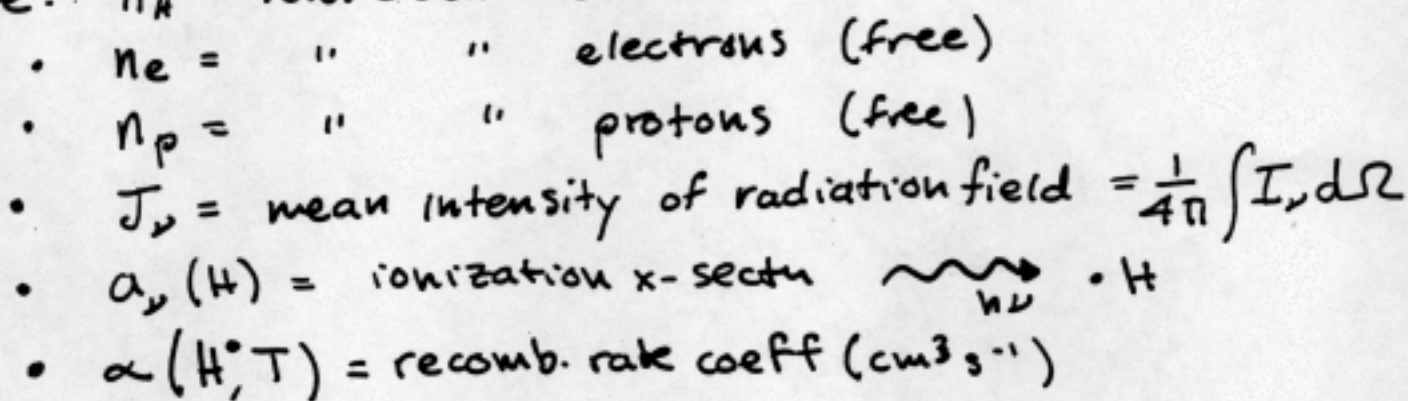 • ne = " " electrons (free)
• np = " " protons (free)
• Jν = mean intensity of radiation field = 1/4π ∫Iν dΩ
• aν (H) = ionization x-sectn hν • H
• α(H°,T) = recomb. rate coeff (cm³ s⁻¹)